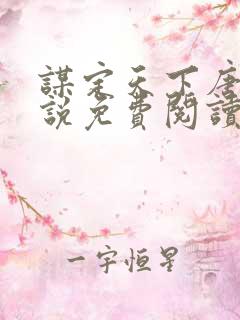 謀定天下唐
說免費閱讀
一宇恒星